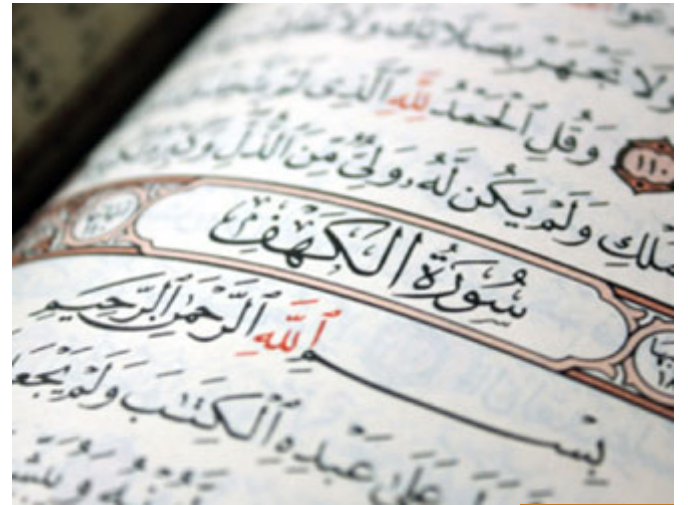 وَلَا تَجْهَرْ بِصَلَاتِكَ وَلَا
١١٠ وَقُلِ ٱلْحَمْدُ لِلَّهِ ٱلَّذِى لَمْ
ٱلْمُلْكِ وَلَمْ يَكُن لَّهُۥ وَلِىٌّ مِّنَ ٱلذُّلِّ وَكَبِّرْهُ
سُورَةُ الكَهْفِ
بِسْمِ ٱللَّهِ ٱلرَّحْمَٰنِ ٱلرَّحِيمِ
عَلَىٰ عَبْدِهِ ٱلْكِتَٰبَ وَلَمْ يَجْعَل